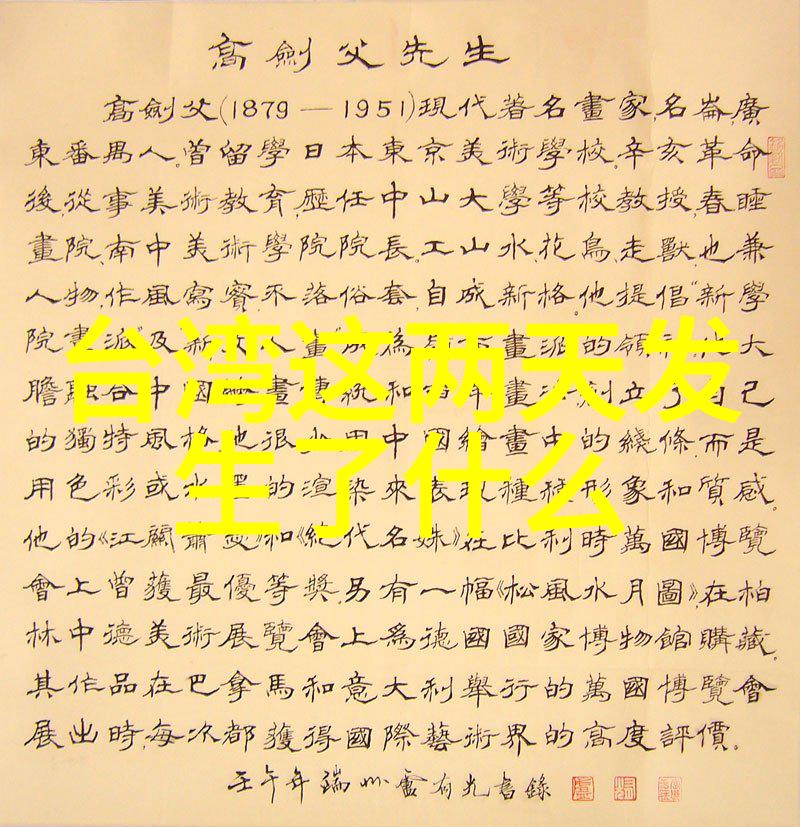 高劍父先生
高劍父(1879—1951)現代著名畫家,名崙,廣
東番禺人。曾留學日本東京美術學校,辛亥革命
後,從事美術教育,歷任中山大學等校教授,春睡
畫院、南中美術學院院長。工山水、花鳥、走獸,也兼
人物。作風寫實,不落俗套,自成新格。他提倡"新學
院畫派"及"新文人畫",成為畫派的領大
膽融合中國畫傳統和畫創立了自己
的獨特風格。他很用中國繪畫中的綫條,而是
用色彩或水墨的渲染來表現種種形象和質感。
他的《江關蕭瑟》和《絕代名姝》在比利時萬國博覽
會上曾獲最優等獎,另有一幅《松風水月圖》,在柏
林中德美術展覽會上為德國國家博物館購藏。
其作品在巴拿馬和意大利舉行的萬國博覽會
展出時,每次都獲得國際藝術界的高度評價。
壬午年端州盧有光書錄
台湾这两天发
生了什么